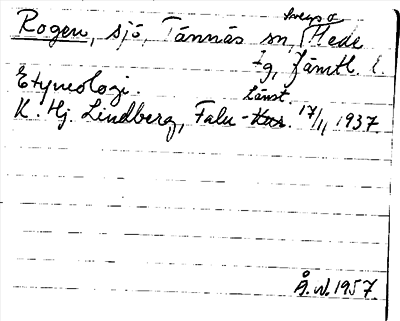 Rogen, sjö, Tännäs sn, Svegs o Hede
tg, Jämtl. l.
Etymologi. Länst.
K. Hj. Lindberg, Falu-Kur. 17/11 1937
Å. W. 1957.